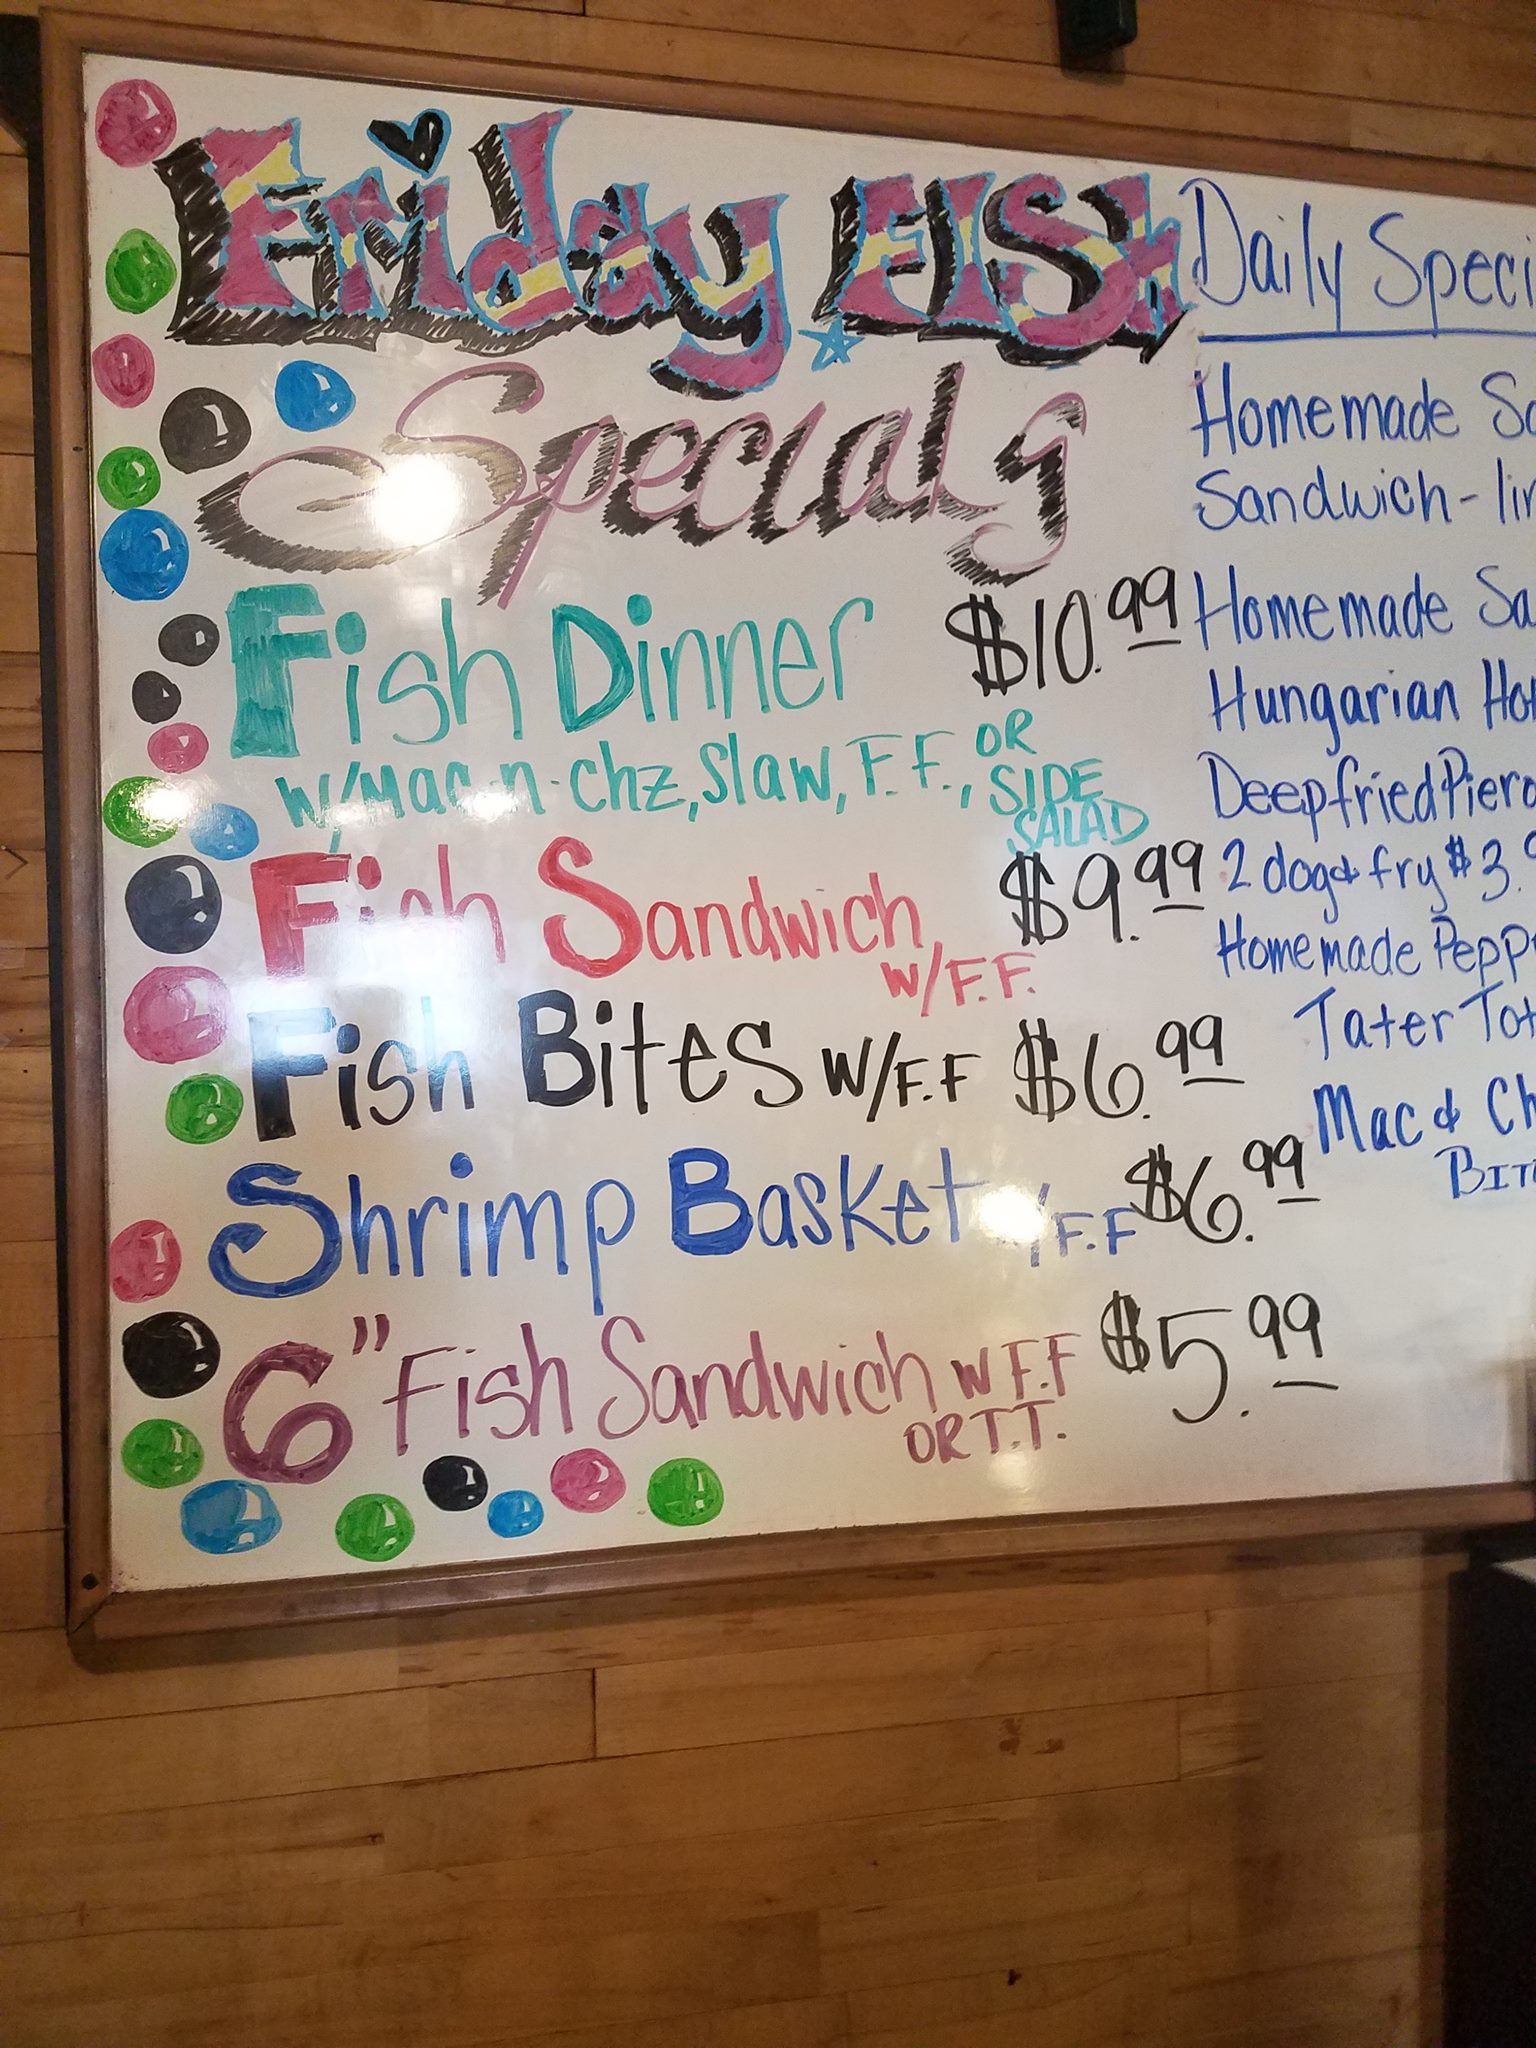 Friday Fish
Specials
Fish Dinner $10.99
w/Mac-n-chz, Slaw, F.F., OR
SIDE
SALAD
Fish Sandwich $9.99
w/F.F.
Fish Bites w/F.F $6.99
Shrimp Basket w/F.F $6.99
6" Fish Sandwich w F.F $5.99
OR T.T.
Daily Speci
Homemade
Sandwich -
Homemade
Hungarian
Deepfried
2 dog & fry $3.
Homemade
Tater
Mac &